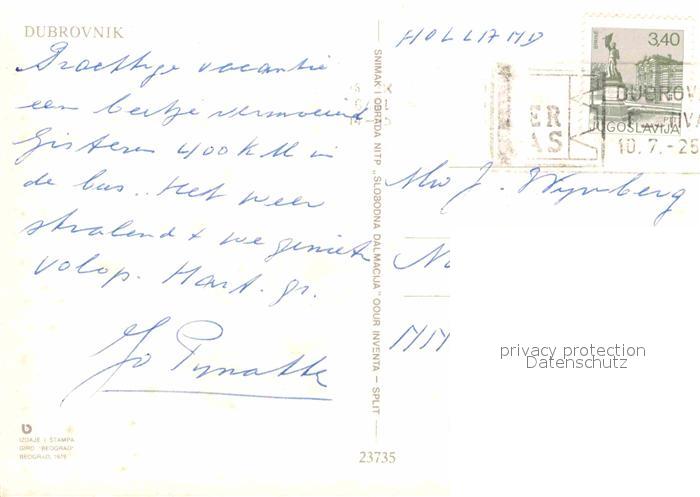 DUBROVNIK
Prachtige vacantie
een beetje vermoeiend
Gisteren 400 KM in
de bus.. Het weer
stralend + we genieten
volop. Hart. gr.
Jo
HOLLAND
3,40
JUGOSLAVIJA
DUBROV
10.7.-25
Mw J. Wijnberg
privacy protection
Datenschutz
SNIMAK I OBRADA NITP „SLOBODNA DALMACIJA" OOUR INVENTA — SPLIT
IZDAJE I ŠTAMPA
GIRO "BEOGRAD"
BEOGRAD, 1978
23735